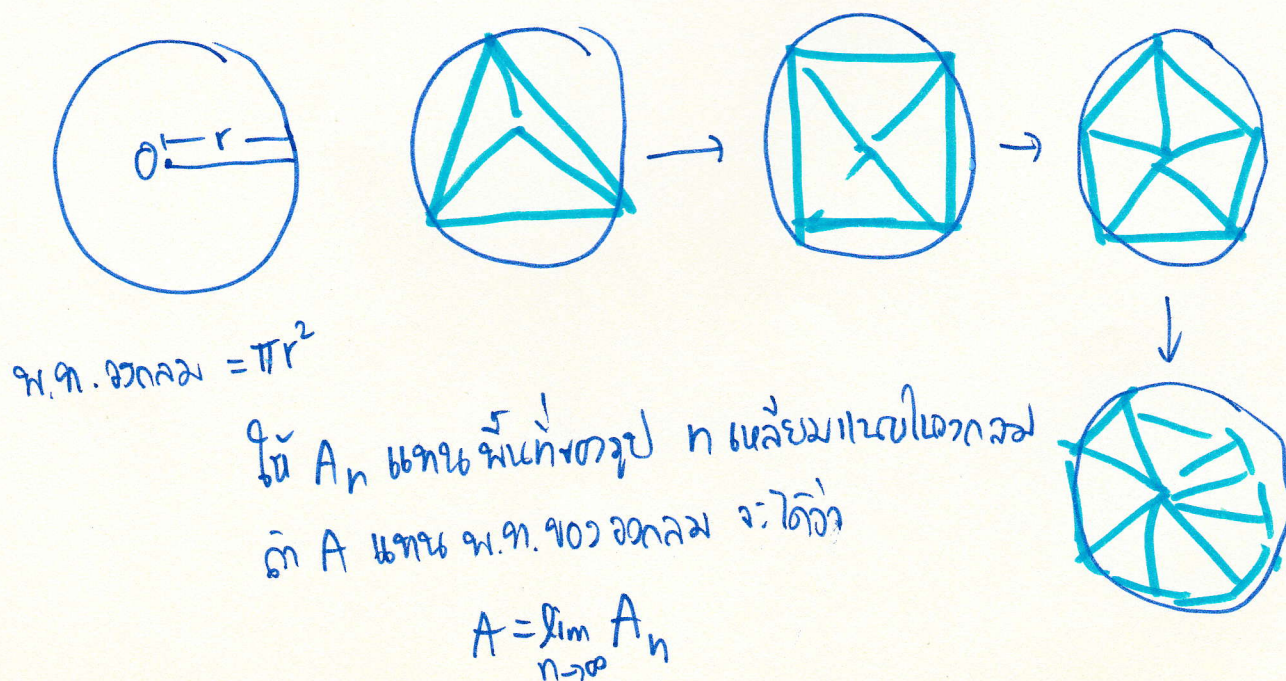 O r
พ.ท. วงกลม = πr²
ให้ Aₙ แทนพื้นที่ของรูป n เหลี่ยมแนบในวงกลม
ถ้า A แทน พ.ท. ของวงกลม จะได้ว่า
A = lim Aₙ
n→∞